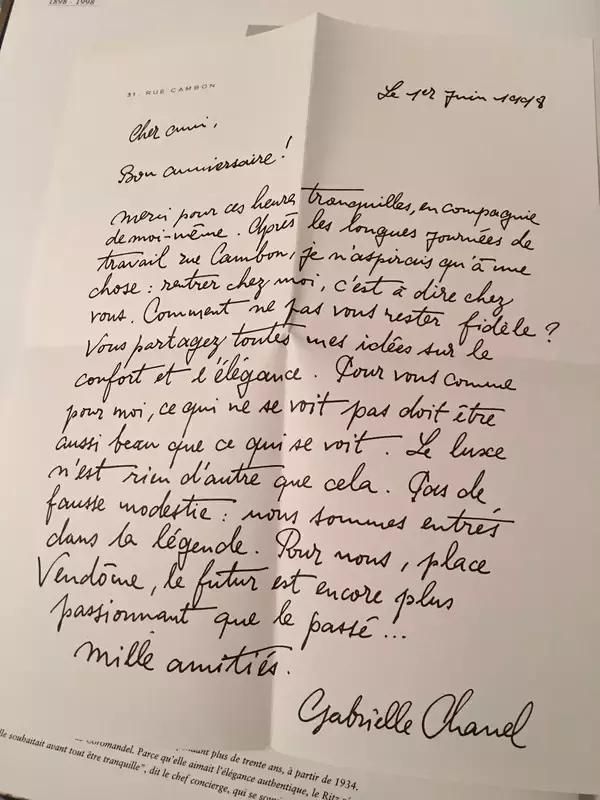 1898 - 1998
31, RUE CAMBON
Le 1er Juin 1998
Cher ami,
Bon anniversaire !
Merci pour ces heures tranquilles, en compagnie
de moi-même. Après les longues journées de
travail rue Cambon, je n'aspirais qu'à une
chose : rentrer chez moi, c'est à dire chez
vous. Comment ne pas vous rester fidèle ?
Vous partagez toutes mes idées sur le
confort et l'élégance. Pour vous comme
pour moi, ce qui ne se voit pas doit être
aussi beau que ce qui se voit. Le luxe
n'est rien d'autre que cela. Pas de
fausse modestie : nous sommes entrés
dans la légende. Pour nous, place
Vendôme, le futur est encore plus
passionnant que le passé...
Mille amitiés.
Gabrielle Chanel
pendant plus de trente ans, à partir de 1934.
Coromandel. Parce qu'elle aimait l'élégance authentique, le Ritz
lle souhaitait avant tout être tranquille", dit le chef concierge, qui se